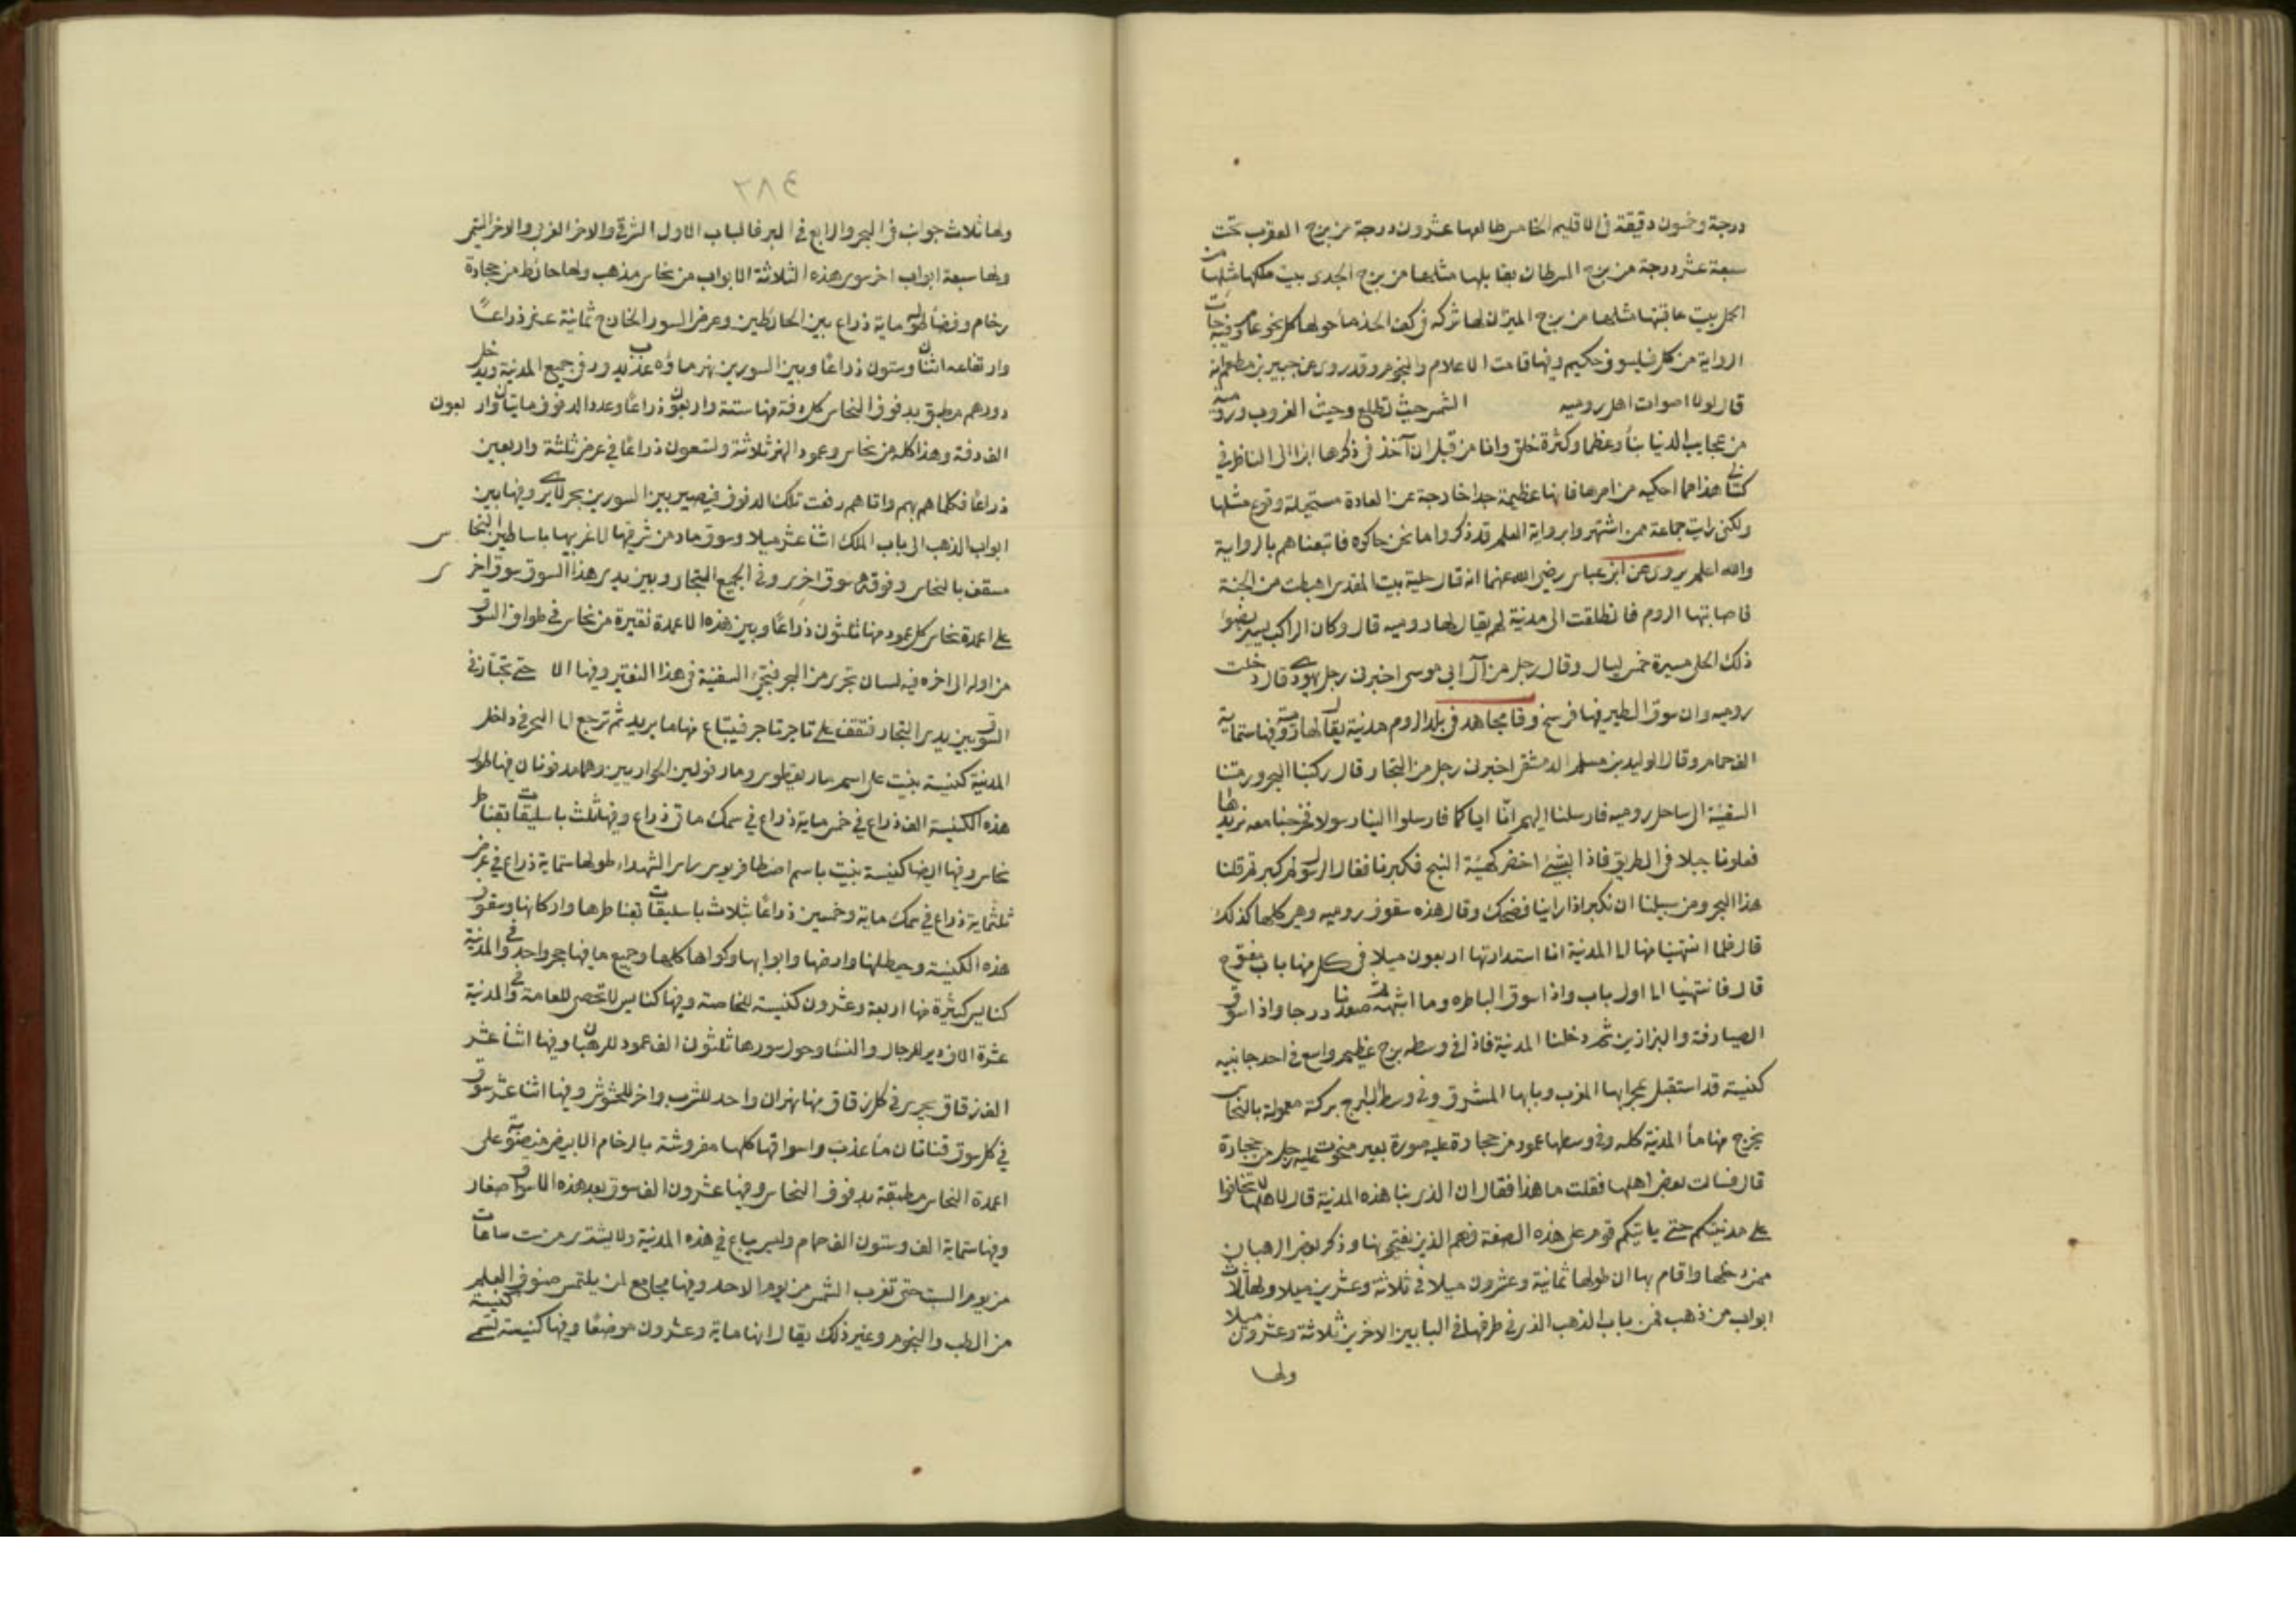 درجة وخمسون دقيقة في الاقليم الخامس طالعها عشرون درجة من برج العقرب تحت
سبعة عشر درجة من برج السرطان يقابلها مثلها من برج الجدي بيت ملكها مثلها من
الحمل بيت عاقبتها مثلها من برج الميزان لها شركه في كف الجذما حولها كل نحو عامر وفيها جات
الرواية من كل فيلسوف حكيم وفيها قامت الاعلام والنجوم وقد روي عن جبير بن مطعم انه
قال لولا اصوات اهل روميه الشمس حيث تطلع وحيث الغروب ورومية
من عجايب الدنيا بنأ وعظما وكثرة خلق وانا من قبل ان آخذ في ذكرها ابرا الى الناظر في
كتابي هذا مما احكيه من امرها فانها عظيمة جدا خارجة عن العادة مستحيلة وقوع مثلها
ولكني رايت جماعة ممن اشتهروا برواية العلم قد ذكروا ما نحن حاكوه فاتبعناهم بالرواية
والله اعلم يروى عن ابن عباس رضي الله عنهما انه قال حلية بيت المقدس اهبطت من الجنة
فاصابتها الروم فانطلقت الى مدينة لهم يقال لها روميه قال وكان الراكب يسير بضوء
ذلك الحلي مسيرة خمس ليال وقال رجل من آل ابي موسى اخبرني رجل يهودي قال دخلت
روميه وان سوق الطير فيها فرسخ وقال مجاهد في بلد الروم مدينة يقال لها رومية فيها ستماية
الف حمام وقال الوليد بن مسلم الدمشقي اخبرني رجل من التجار قال ركبنا البحر ورمتنا
السفينة الى ساحل روميه فارسلنا اليهم انّا اياكما فارسلوا الينا رسولا فخرجنا معه نريدها
فعلونا جبلا في الطريق فاذا بشيء اخضر كهيئة النبج فكبرنا فقال الرسول لم كبرتم قلنا
هذا البحر ومن سبيلنا ان نكبر اذا راينا فضحك وقال هذه سقوف روميه وهي كلها كذلك
قال فلما انتهينا منها الى المدينة اذا استدارتها اربعون ميلا في كل منها باب مفتوح
قال فانتهينا الى اول باب واذا سوق البياطره وما اشبهه ثم صعدنا درجا واذا سوق
الصيارفة والبزازين ثم دخلنا المدينة فاذا في وسطه برج عظيم واسع في احد جانبيه
كنيسة قد استقبل بمحرابها المغرب وبابها المشرق وفي وسط البرج بركة معمولة بالنحاس
يخرج منها ماء المدينة كله وفي وسطها عمود من حجارة عليه صورة بعير منحوت عليه رجل من حجارة
قال فسالت بعض اهلها فقلت ما هذا فقال ان الذي بنا هذه المدينة قال لاهلها لا تخافوا
على مدينتكم حتى ياتيكم قوم على هذه الصفة فهم الذين يفتحونها وذكر بعض الرهبان
ممن دخلها واقام بها ان طولها ثمانية وعشرون ميلا في ثلاثة وعشرين ميلا ولها ثلاث
ابواب من ذهب فمن باب الذهب الذي في طرفها الى البابين الاخرين ثلاثة وعشرون ميلا
ولها
٢٨٤
ولها ثلاث جوانب في البحر والرابع في البر فالباب الاول الشرقي والاخر الغربي والاخر اليمنى
ولها سبعة ابواب اخر سوى هذه الثلاثة الابواب من نحاس مذهب ولها حائط من حجارة
رخام وفضاء طوله ماية ذراع بين الحائطين وعرض السور الخارج ثمانية عشر ذراعاً
وارتفاعه اثنان وستون ذراعاً وبين السورين نهر ماؤه عذب يدور في جميع المدينة ويدخل
دورهم مطبق بدفوف النحاس كل دفة منها ستة واربعون ذراعاً وعدد الدفوف مايتان واربعون
الف دفة وهذا كله من نحاس وعمود النهر ثلاثة وتسعون ذراعاً في عرض ثلثة واربعين
ذراعاً فكلما هم بهم واتاهم رفعت تلك الدفوف فيصير بين السورين بحر لا يرى وفيها بين
ابواب الذهب الى باب الملك اثنا عشر ميلا وسوق ماد من شرقيها الى غربيها باساطين النحاس
مسقف بالنحاس وفوقه سوق اخرى وفي الجميع التجار وبين يدي هذا السوق سوق اخرى
على اعمدة نحاس كل عمود منها ثلثون ذراعاً وبين هذه الاعمدة نقيرة من نحاس في طول السوق
من اوله الى اخره فيه لسان تجري من البحر فتجيء السفينة في هذا النقير وفيها الا حتى تجتاز في
السوق بين يدي التجار فتقف على تاجر تاجر فيبتاع منها ما يريد ثم ترجع الى البحر في داخل
المدينة كنيسة بنيت على اسم مار بطرس ومار فولس الحواريين وهما مدفونان فيها طول
هذه الكنيسة الف ذراع في خمس ماية ذراع في سمك ماتي ذراع وفيها ثلث باسليقات بقناطر
نحاس وفيها ايضا كنيسة بنيت باسم اصطافريوس راس الشهداء طولها ستماية ذراع في عرض
ثلثماية ذراع في سمك ماية وخمسين ذراعاً بثلاث باسليقات بقناطرها واركانها وسقوف
هذه الكنيسة وحيطانها وارضها وابوابها وكواها كلها وجميع ما فيها حجر واحد وفي المدينة
كنايس كثيرة منها اربعة وعشرون كنيسة للخاصة وفيها كنايس لا تحصى للعامة وفي المدينة
عشرة الاف دير للرجال والنساء وحول سورها ثلثون الف عمود للرهبان وفيها اثنا عشر
الف زقاق يجري في كل زقاق منها نهران واحد للشرب واخر للحشوش وفيها اثنا عشر سوق
في كل سوق قناتان ماء عذب واسواقها كلها مفروشة بالرخام الابيض منصوبة على
اعمدة النحاس مطبقة بدفوف النحاس وفيها عشرون الف سوق بعد هذه الاسواق صغار
وفيها ستماية الف وستون الف حمام وليس يباع في هذه المدينة ولا يشترى من ست ساعات
من يوم السبت حتى تغرب الشمس من يوم الاحد وفيها مجامع لمن يلتمس صنوف العلم
من الطب والنجوم وغير ذلك يقال انها ماية وعشرون موضعاً وفيها كنيسة تسمى كنيسة